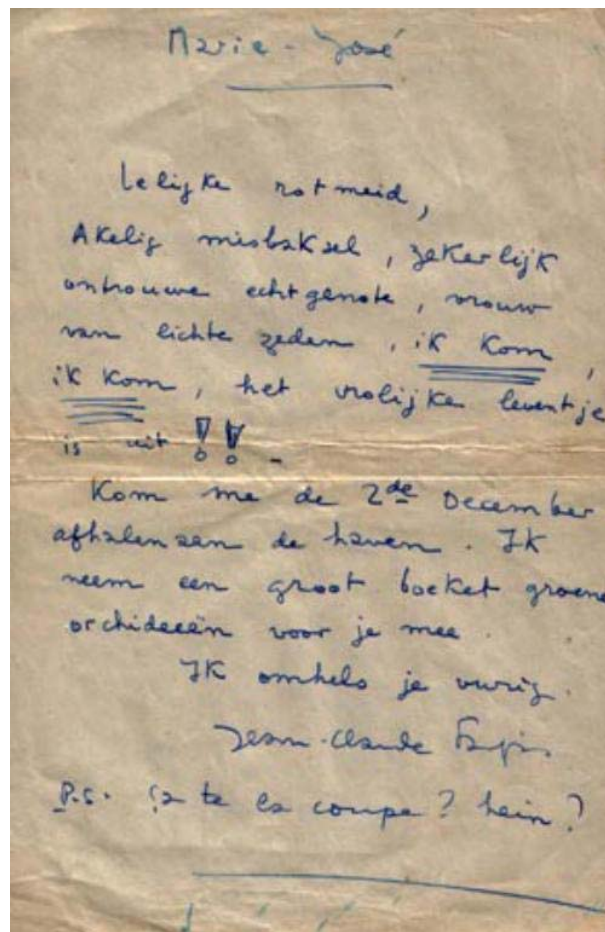 Marie-José
Lelijke rotmeid,
Akelig misbaksel, zekerlijk
ontrouwe echtgenote, vrouw
van lichte zeden, ik kom,
ik kom, het vrolijke leventje
is uit !! -
Kom me de 2de December
afhalen aan de haven. Ik
neem een groot boeket groene
orchideeën voor je mee.
Ik omhels je vurig.
Jean-Claude
P.S. ça te la coupe? hein?